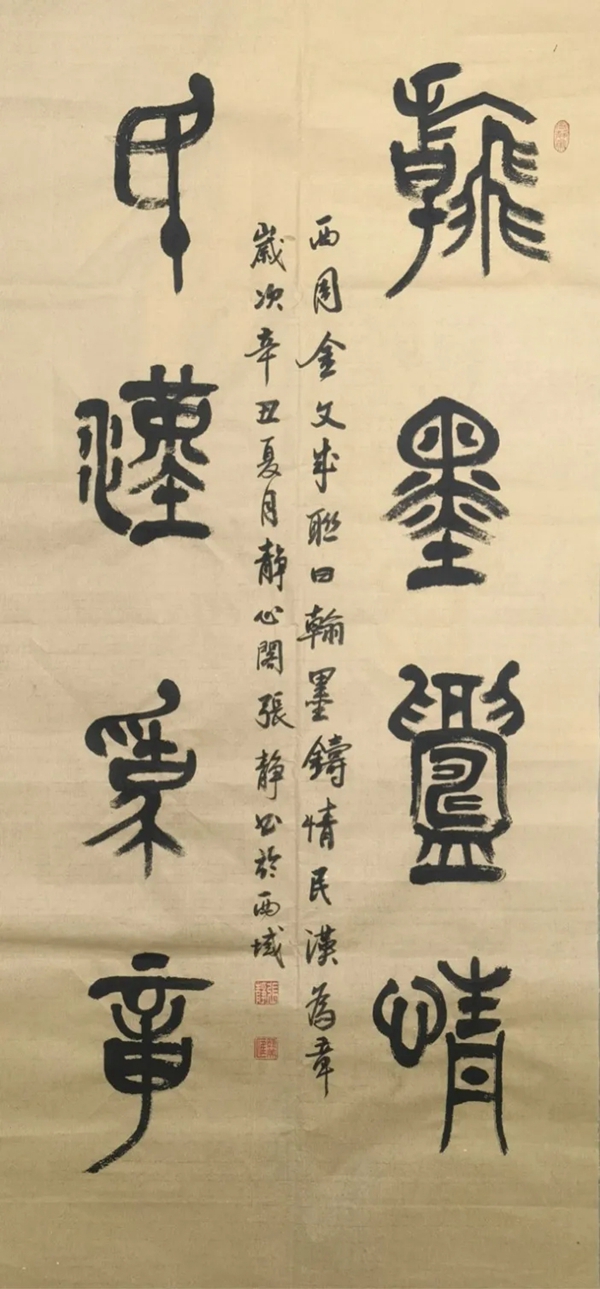 翰墨鑄情
西周金文集聯曰翰墨鑄情民漢為章
歲次辛丑夏月靜心閣張靜書於西域
民漢為章